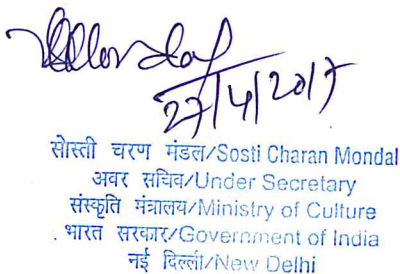 27/4/2017
सोस्ती चरण मंडल/Sosti Charan Mondal
अवर सचिव/Under Secretary
संस्कृति मंत्रालय/Ministry of Culture
भारत सरकार/Government of India
नई दिल्ली/New Delhi